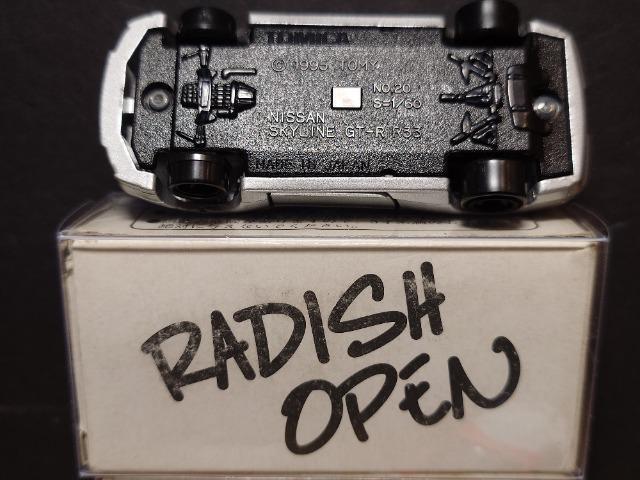 TOMICA
© 1995 TOMY
NO.20
S=1/60
NISSAN
SKYLINE GT-R R33
MADE IN JAPAN
RADISH
OPEN